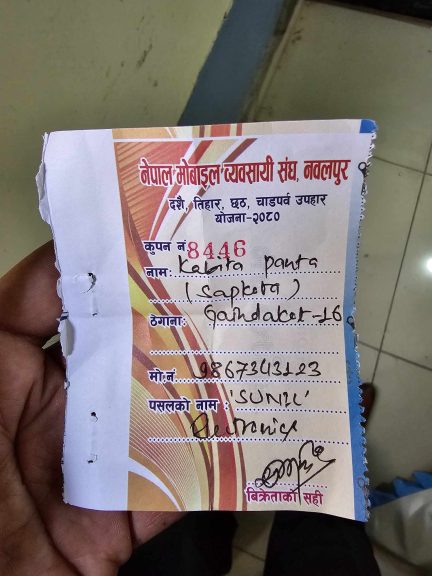 नेपाल मोबाइल व्यवसायी संघ, नवलपुर
दशै, तिहार, छठ, चाडपर्व उपहार
योजना-२०८०
कुपन नं 8446
नाम: Kabita panta
(Sapkota)
ठेगाना: Gaindakot-16
मो.नं 9867343123
पसलको नाम : 'SUNIL'
Electronics
बिक्रेताको सही